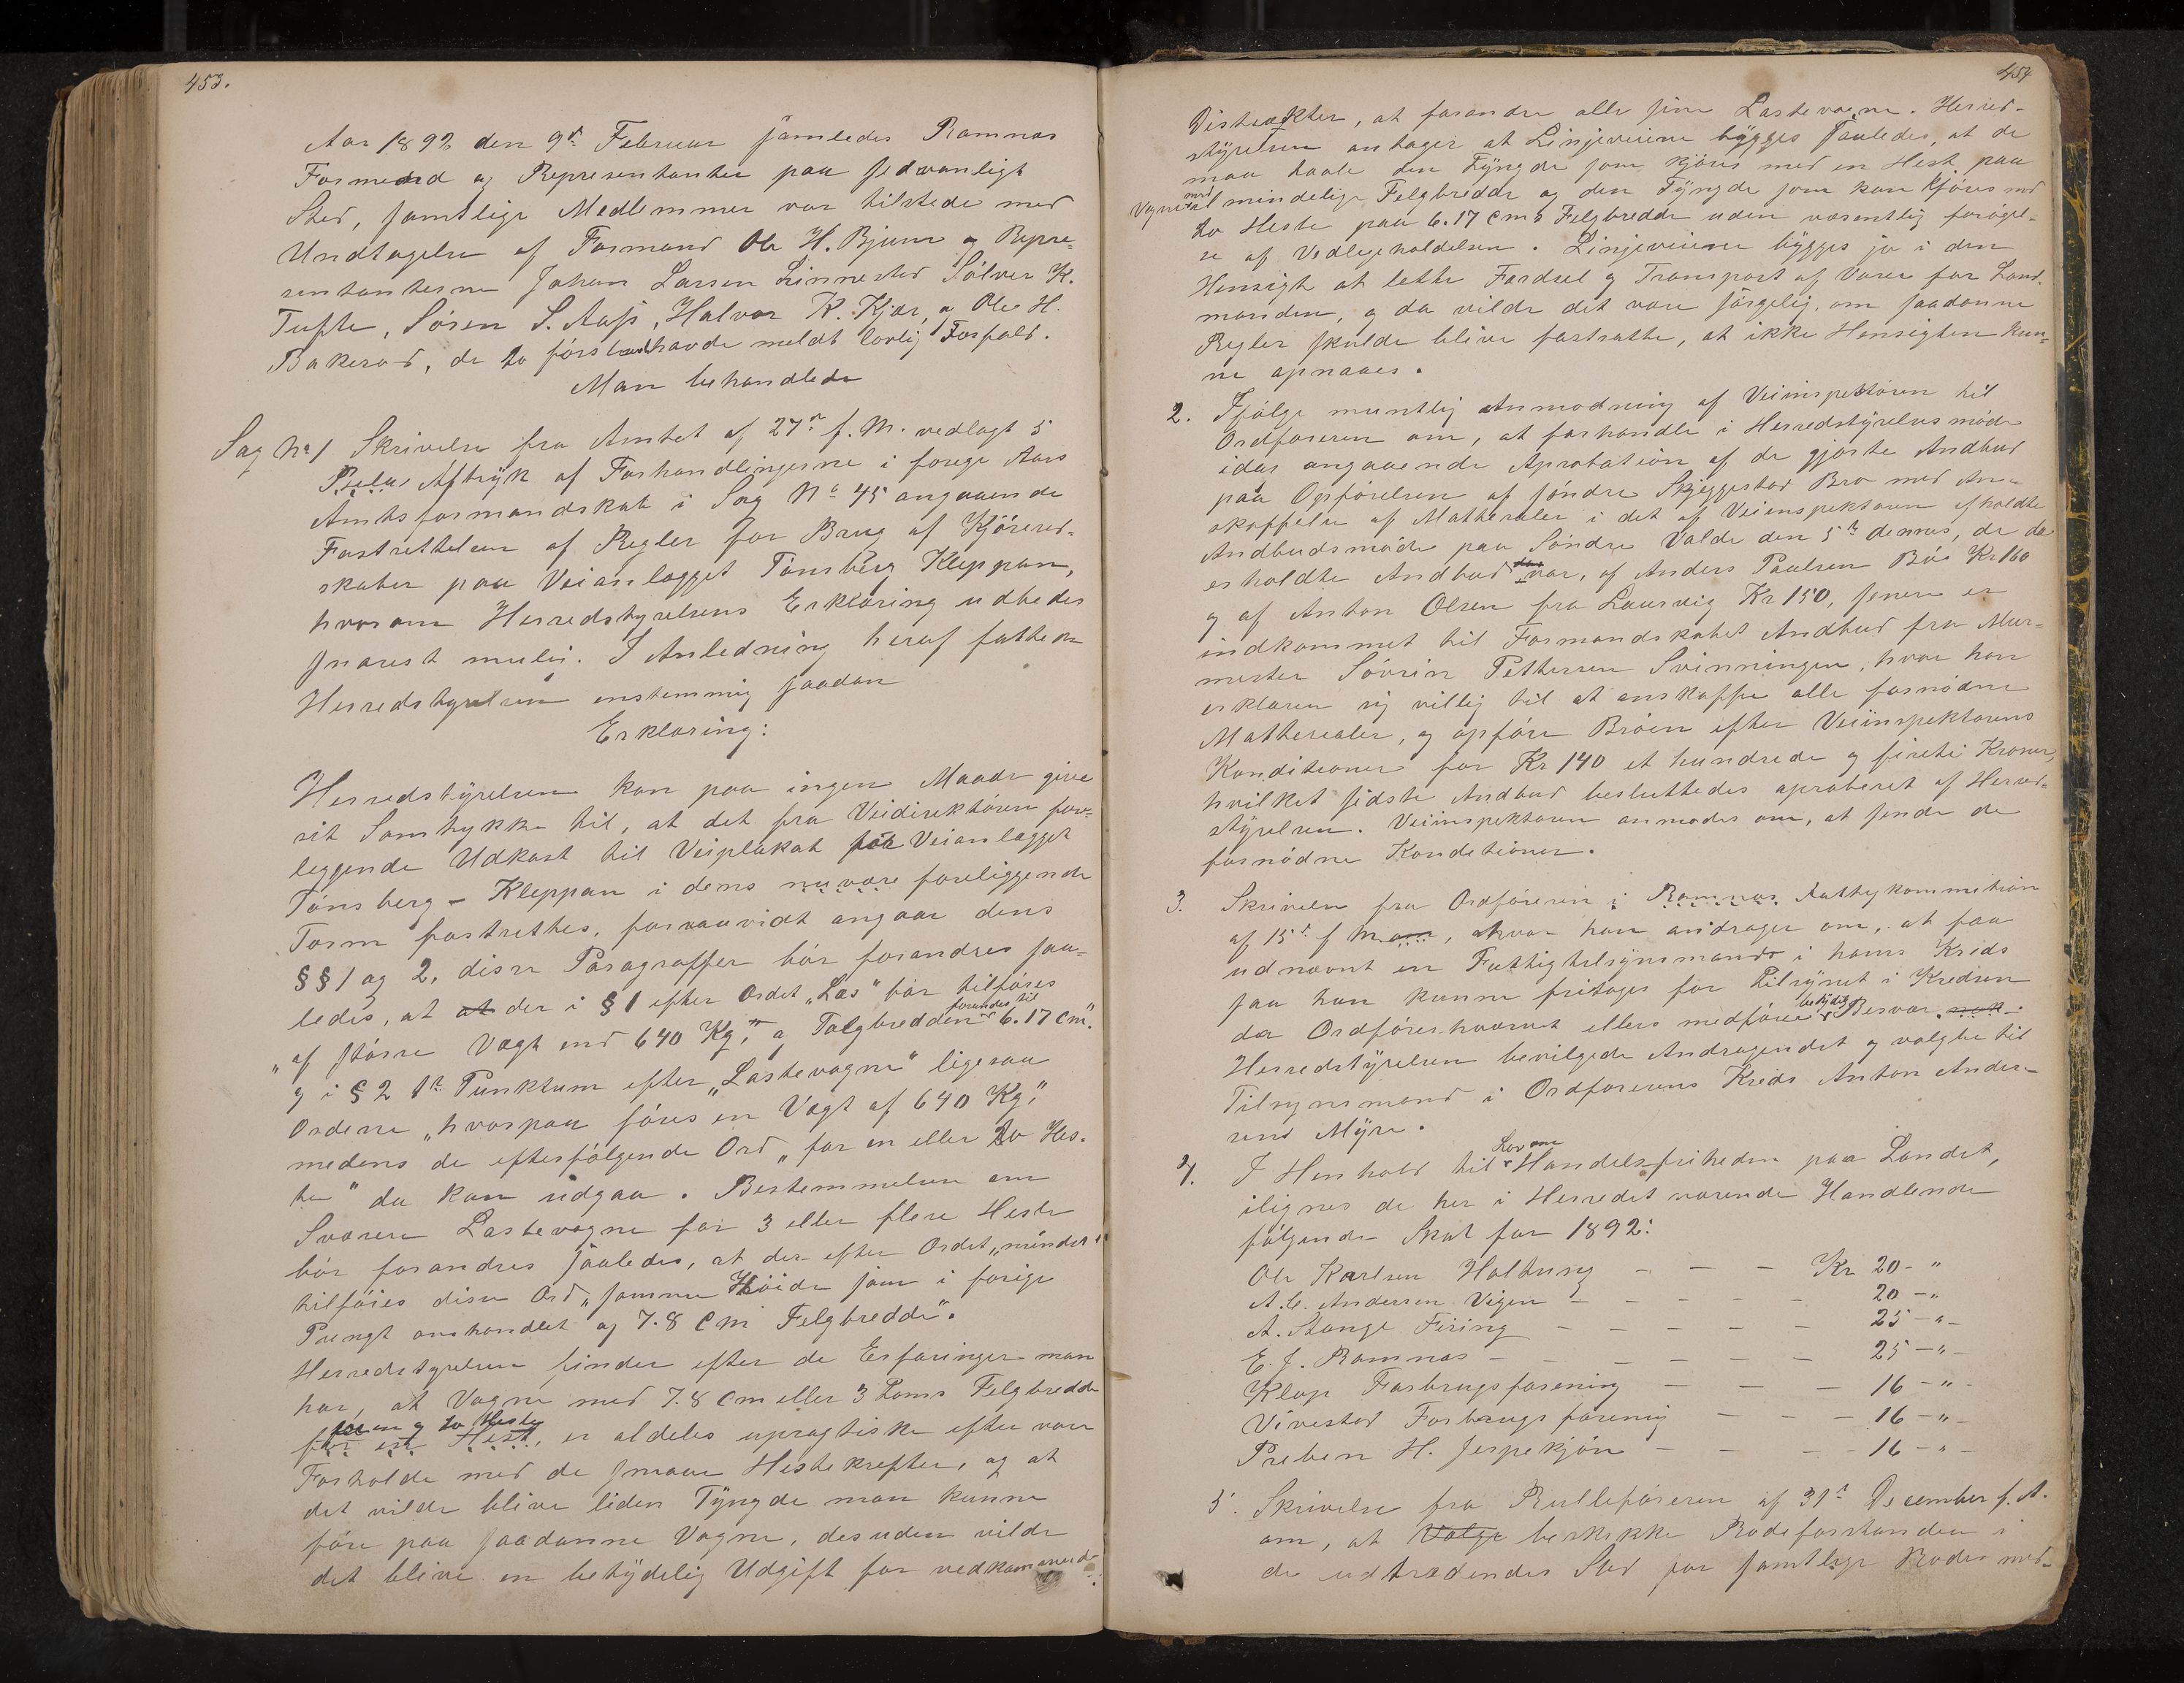 453.
Aar 1892 den 9de Februar samledes Ramnæs
Formænd og Representanter paa sedvanligt
Sted, samtlige Medlemmer var tilstede med
Undtagelse af Formand Ole H. Bjune og Repre-
sentanterne Johan Larsen Linnestad Sölver K.
Tufte, Sören S. Aass, Halvor K. Kjær, og Ole H.
Bakerød, de to först havde meldt lovlig Forfald.
Man behandlede
Sag No 1 Skrivelse fra Amtet af 27de f. M. vedlagt 5
Aftryk af Forhandlingerne i forige Aars
Amtsformandskab i Sag No 45 angaaende
Fastsettelsen af Regler for Brug af Kjörered-
skaber paa Veianlægget Tönsberg Kleppan,
hvorom Herredstyrelsens Erklæring udbedes
snarest mulig. I Anledning heraf fattede
Herredstyrelsen enstemmig saadan
Erklæring:
Herredstyrelsen kan paa ingen Maade give
sit Samtykke til, at det fra Veidirektören fore-
leggende Udkast til Veiplakat for Veianlægget
Tönsberg - Kleppan i dens nuvære foreliggende
Form fastsettes, forsaavidt angaar dens
§§ 1 og 2, disse Paragraffer bör forandres saa-
ledes, at at der i § 1 efter Ordet „Læs" bör tilföies
„af större Vægt end 640 Kg", og Fælgbredden forandres til 6.17 cm".
og i § 2 1ste Punktum efter „Lastevogne" ligesaa
Ordene „hvorpaa föres en Vægt af 640 Kg",
medens de efterfölgende Ord „for en eller to Hes-
te" da kan udgaa. Bestemmelsen om
Sværere Lastevogne for 3 eller flere Heste
bör forandres saaledes, at der efter Ordet „mindst"
tilföies disse Ord „samme Höide som i forige
Pungt omhandlet og 7.8 Cm Felgbredde".
Herredstyrelsen finder efter de Erfaringer man
har, at Vogne med 7.8 Cm eller 3 Toms Felgbredde
for en og to Heste
for en Hest, er aldeles upragtiske efter vore
Forholde med de smaae Hestekrefter, og at
det vilde blive liden Tyngde man kunne
före paa saadanne Vogne, desuden vilde
det blive en betydelig Udgift for vedkommende
454
Distrikter, at forandre alle sine Lastevogne. Herred-
styrelsen antager at Linjeveiene bygges saaledes, at de
maa taale den Tyngde som kjöres med en Hest paa
Vogne med almindelige Felgbredde og den Tyngde som kan kjöres med
to Heste paa 6.17 Cms Felgbredde uden væsentlig forögel-
se af Vedligeholdelsen. Linjeveiene bygges jo i den
Hensigt at lette Færdsel og Transport af Varer for Land-
manden, og da vilde det være sörgelig, om saadanne
Regler skulde blive fastsatte, at ikke Hensigten kun-
ne opnaaes.
2. Ifölge muntlig Anmodning af Veiinspektören til
Ordföreren om, at forhandle i Herredstyrelsesmöde
idag angaaende Aprobation af de gjorte Andbud
paa Opförelsen af söndre Skjeggestad Bro med An-
skaffelse af Matherialer i det af Veiinspektören afholdte
Andbudsmöde paa Söndre Valde den 5te dennes, de da
erholdte Andbud var, af Anders Paulsen Böe Kr 160
og af Anton Olsen fra Laurvig Kr 150, senere er
indkommet til Formandskabet Andbud fra Mur-
mester Sövrin Pettersen Svinningen, hvor han
erklærer sig villig til at anskaffe alle fornödne
Matherealer, og opföre Broen efter Veiinspektörens
Konditioner for Kr 140 et hundrede og firti Kroner,
hvilket sidste Andbud besluttedes aproberet af Herred-
styrelsen. Veiinspektören anmodes om, at sende de
fornödne Konditioner.
3. Skrivelse fra Ordföreren i Ramnæs Fattigkommition
af 15de f M om, hvor han andrager om, at faa
udnævnt en Fattigtilsynsmand i hans Kreds
saa han kunne fritages for Tilsynet i Kredsen
da Ordförerhvervet ellers medförer betydelig Besvær.
Herredstyrelsen bevilgede Andragendet og valgte til
Tilsynsmand i Ordförerens Kreds Anton Ander-
sens Myre.
4. I Henhold til Lov om Handelsfriheden paa Landet,
ilignes de her i Herredet værende Handlende
fölgende Skat for 1892:
Ole Karlsen Holtung - - - Kr 20 - "
A. C. Andersen Vigen - - - - - 20 - "
A. Stange Firing - - - - - 25 - " -
E. J. Ramnæs - - - - - - 25 - " -
Klop Forbrugsforening - - - 16 - " -
Vivestad Forbrugsforening - - - 16 - " -
Preben H. Jerpekjön - - - - 16 - " -
5. Skrivelse fra Rulleföreren af 31te December f. A.
om, at Vælge beskikke Rodeforstander i
de udtrædendes Sted for samtlige Roder med-